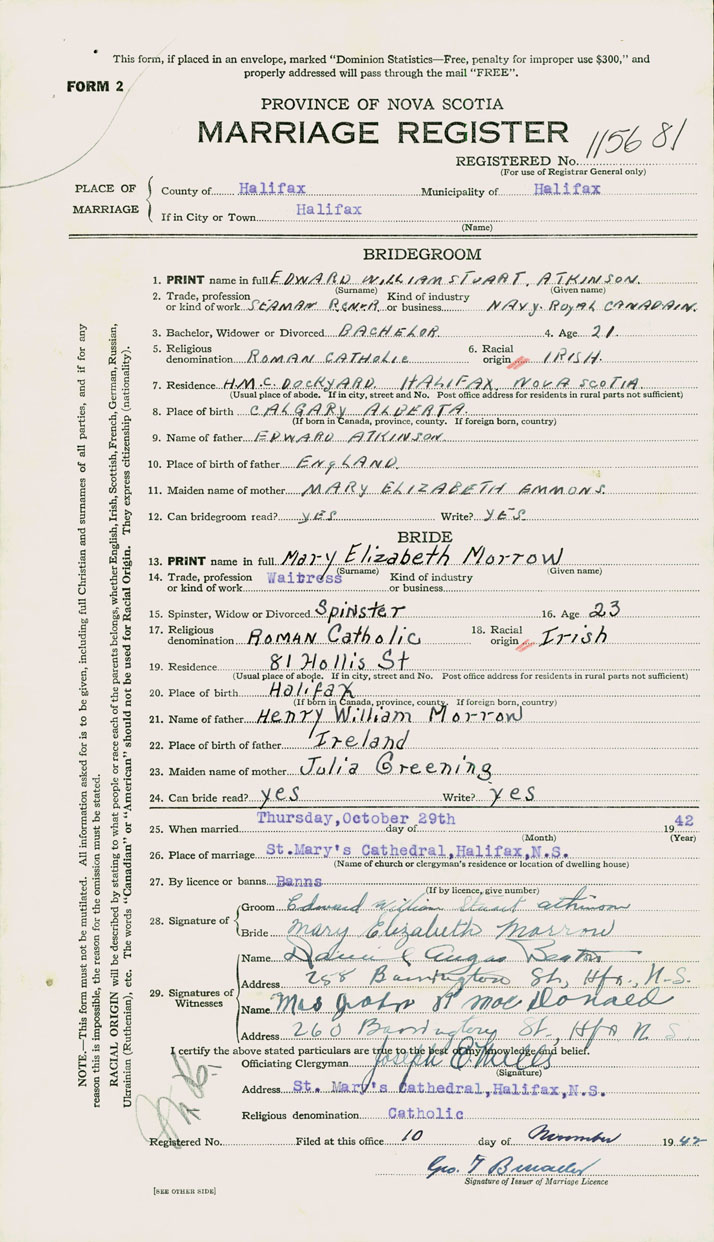 This form, if placed in an envelope, marked "Dominion Statistics—Free, penalty for improper use $300," and
properly addressed will pass through the mail "FREE".
FORM 2
PROVINCE OF NOVA SCOTIA
MARRIAGE REGISTER
REGISTERED No. 1156 81
(For use of Registrar General only)
PLACE OF MARRIAGE
County of Halifax Municipality of Halifax
If in City or Town Halifax
(Name)
BRIDEGROOM
1. PRINT name in full EDWARD WILLIAM STUART. ATKINSON.
(Surname) (Given name)
2. Trade, profession or kind of work SEAMAN Kind of industry or business NAVY. ROYAL CANADAIN.
3. Bachelor, Widower or Divorced BACHELOR 4. Age 21.
5. Religious denomination ROMAN CATHOLIC 6. Racial origin IRISH.
7. Residence H.M.C. DOCKYARD HALIFAX NOVA SCOTIA
(Usual place of abode. If in city, street and No. Post office address for residents in rural parts not sufficient)
8. Place of birth CALGARY ALBERTA.
(If born in Canada, province, county. If foreign born, country)
9. Name of father EDWARD ATKINSON
10. Place of birth of father ENGLAND.
11. Maiden name of mother MARY ELIZABETH EMMONS.
12. Can bridegroom read? YES Write? YES.
BRIDE
13. PRINT name in full Mary Elizabeth Morrow
(Surname) (Given name)
14. Trade, profession or kind of work Waitress Kind of industry or business
15. Spinster, Widow or Divorced Spinster 16. Age 23
17. Religious denomination Roman Catholic 18. Racial origin Irish
19. Residence 81 Hollis St
(Usual place of abode. If in city, street and No. Post office address for residents in rural parts not sufficient)
20. Place of birth Halifax
(If born in Canada, province, county. If foreign born, country)
21. Name of father Henry William Morrow
22. Place of birth of father Ireland
23. Maiden name of mother Julia Greening
24. Can bride read? yes Write? yes
25. When married Thursday, October 29th day of 19 42
(Month) (Year)
26. Place of marriage St.Mary's Cathedral, Halifax, N.S.
(Name of church or clergyman's residence or location of dwelling house)
27. By licence or banns Banns
(If by licence, give number)
28. Signature of
Groom Edward William Stuart Atkinson
Bride Mary Elizabeth Morrow
29. Signatures of Witnesses
Name Daniel Angus Beaton
Address 258 Barrington St, Hfx., N.S.
Name Mrs John R MacDonald
Address 260 Barrington St., Hfx N S
I certify the above stated particulars are true to the best of my knowledge and belief.
Officiating Clergyman Joseph E Mills
(Signature)
Address St. Mary's Cathedral, Halifax, N.S.
Religious denomination Catholic
Registered No. Filed at this office 10 day of November 19 42
Geo. T
Signature of Issuer of Marriage Licence
[SEE OTHER SIDE]
NOTE.—This form must not be mutilated. All information asked for is to be given, including full Christian and surnames of all parties, and if for any
reason this is impossible, the reason for the omission must be stated.
RACIAL ORIGIN will be described by stating to what people or race each of the parents belongs, whether English, Irish, Scottish, French, German, Russian,
Ukrainian (Ruthenian), etc. The words "Canadian" or "American" should not be used for Racial Origin. They express citizenship (nationality).